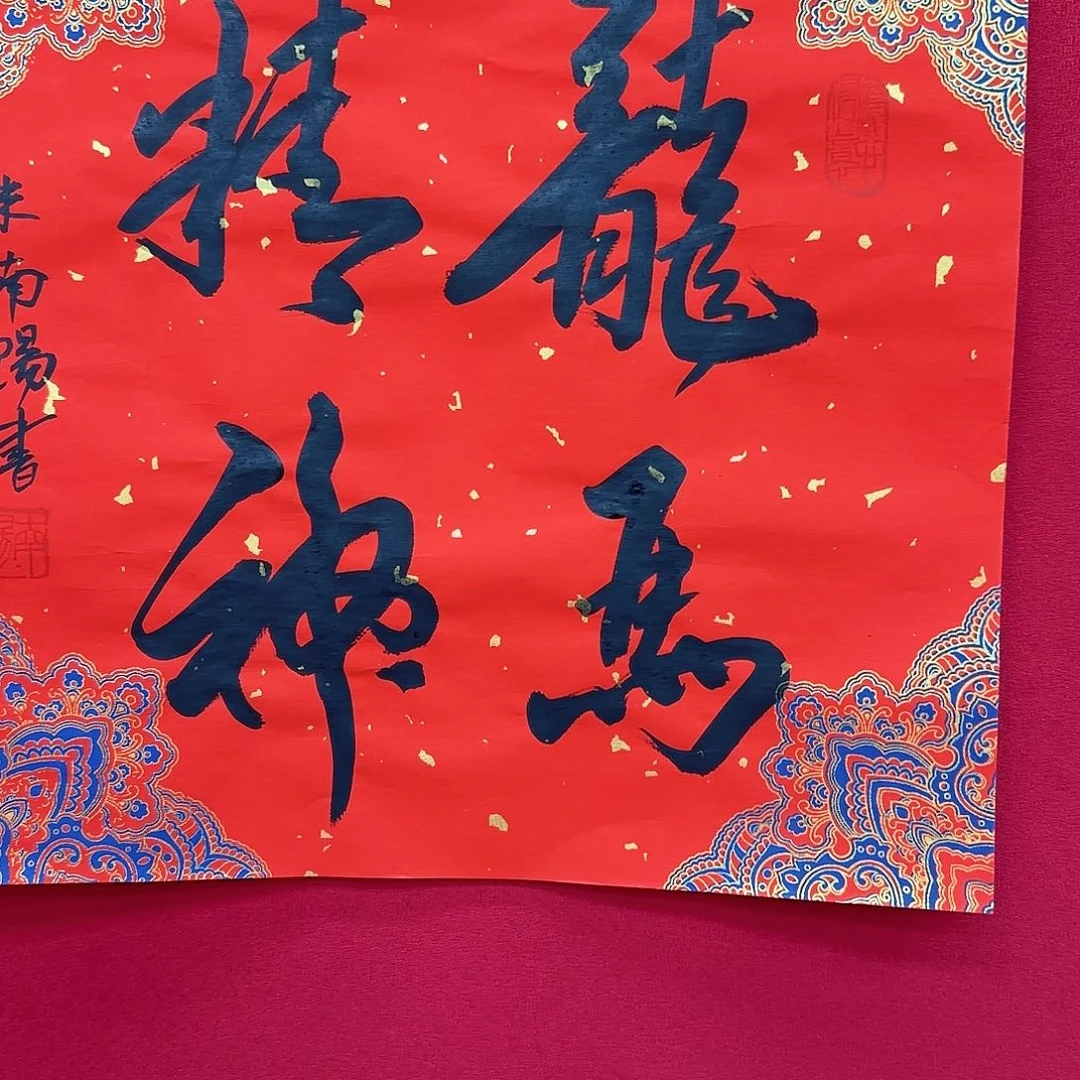 龍馬
精神
朱南陽書